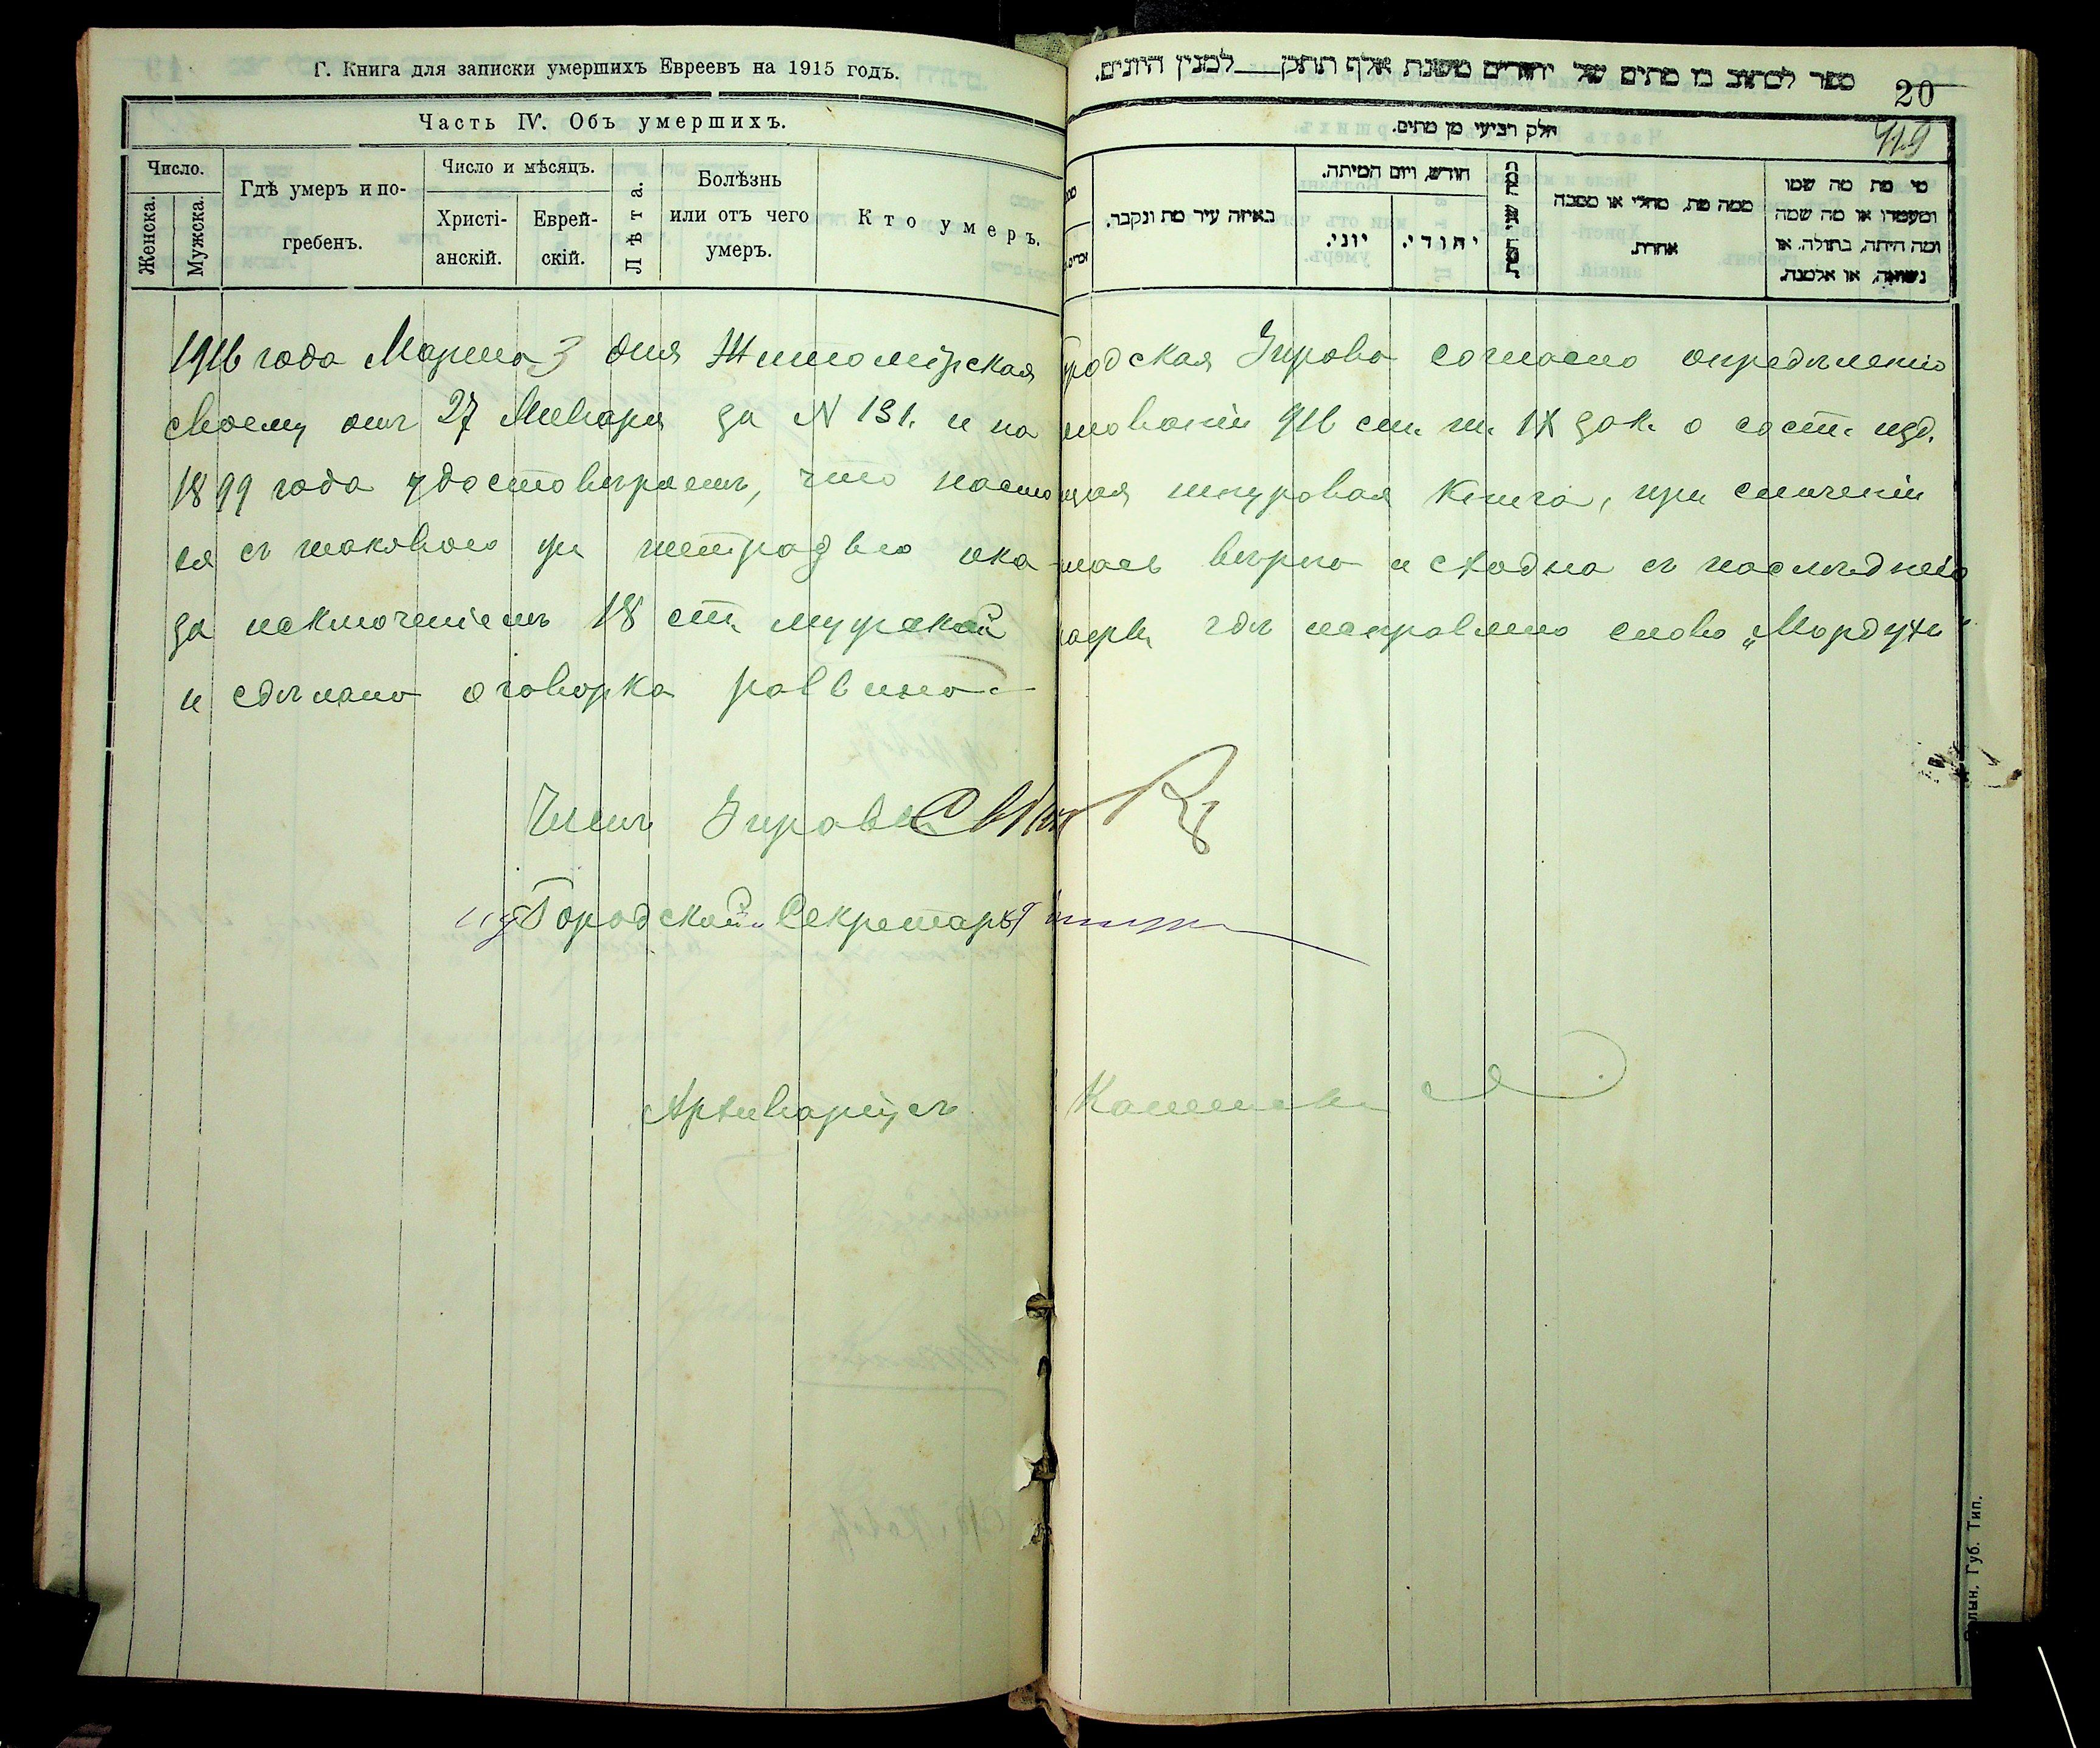 Г. Книга для записки умершихъ Евреевъ на 1915 годъ.
Часть IV. Объ умершихъ.
Число.
Женска.
Мужска.
Гдѣ умеръ и по-
гребенъ.
Число и мѣсяцъ.
Христі-
анскій.
Еврей-
скій.
Лѣта.
Болѣзнь
или отъ чего
умеръ.
Кто умеръ.
ספר לכתוב בו מתים של יהודים משנת אלף תתקן למנין היונים.
20
חלק רביעי מן מתים.
419
באיזה עיר מת ונקבר.
חודש, ויום המיתה.
יוני.
יהודי.
ממה מת, מחלי או מסבה
אחרת.
מי מת מה שמו
ומעמדו או מה שמה
ומה היתה, בתולה, או
נשואה, או אלמנה.
1916 года Марта 3 дня Житомірская Городская Управа согласно опредѣленію
своему отъ 27 Января за N 131. и на основаніи 916 ст. т. IX зак. о сост. изд.
1899 года удостовѣряетъ, что настоящая шнуровая книга, при сличеніи
ея съ таковою же тетрадью оказалась вѣрна и сходна съ послѣднею
за исключеніемъ 18 ст. мужской графы, гдѣ исправлено слово „Мордухъ“
и сдѣлано оговорка раввина
Членъ Управы
и д Городской Секретарь
Архиваріусъ
Губ. Тип.